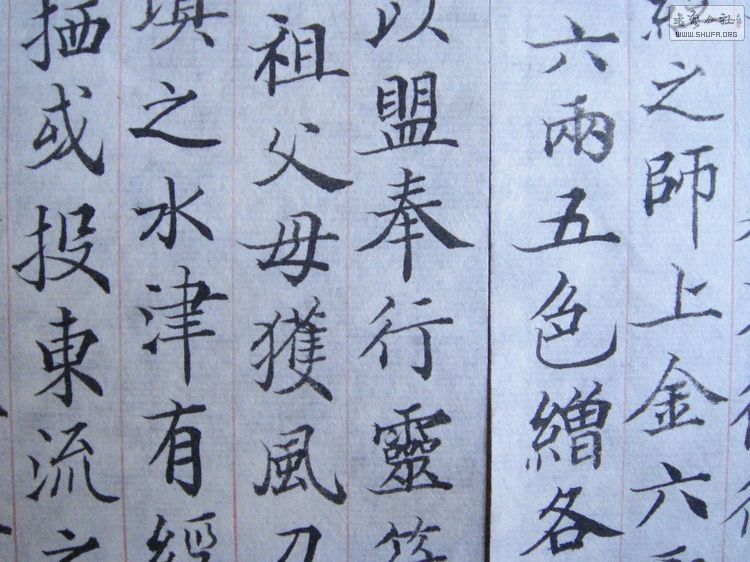 之師上金六
六兩五色繒各
以盟奉行靈
祖父母獲風刀
之水津有經
栖或投東流之
書法公社
WWW.SHUFA.ORG